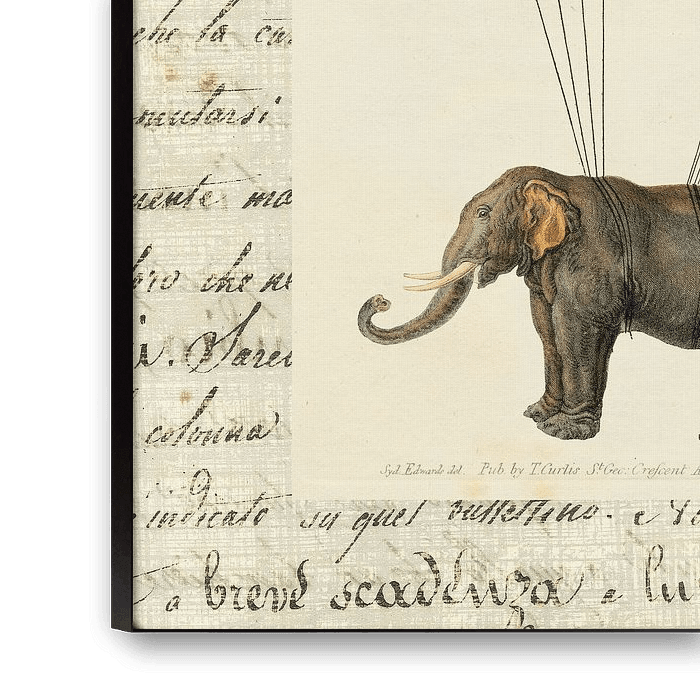 che la
mutarsi
mente mo
che ne
i. Sare
colonna
9.
Syd. Edwards del. Pub. by T. Curtis St. Geo: Crescent
indicato su quel bullettino. e
a breve scadenza e lu